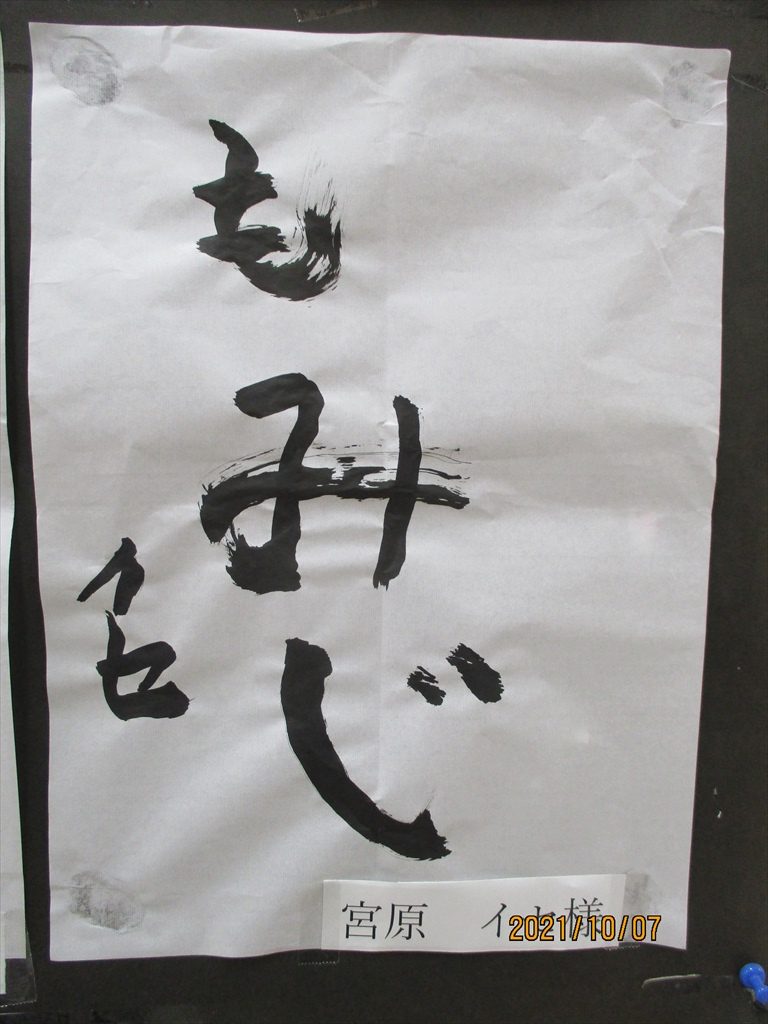 もみじ
イセ
宮原 イセ様
2021/10/07